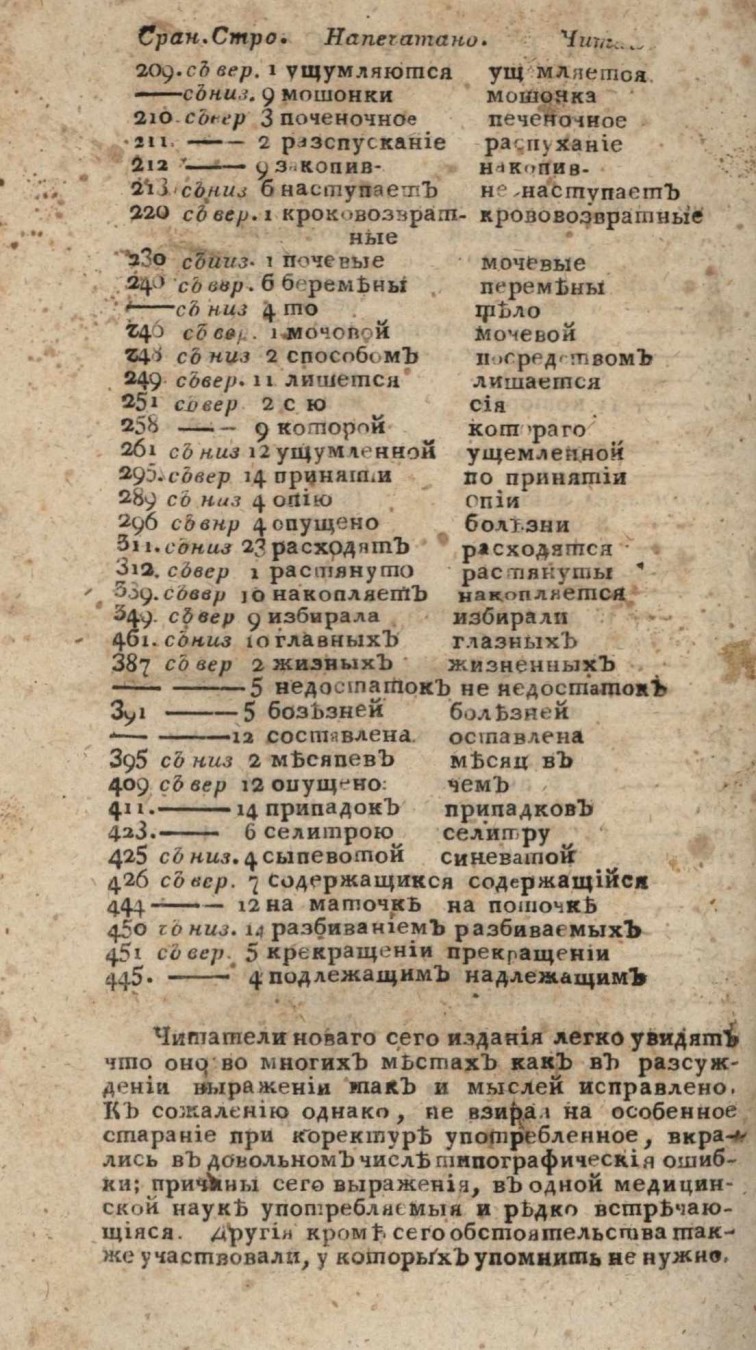 Сран. Стро. Напечатано.
209. съ вер. 1 ущумляются ущ мляется
—— съ низ. 9 мошонки мошонка
210 съ вер 3 поченочное печеночное
211. —— — 2 разспусканіе распуханіе
212 —— — 9 закопив- накопив-
213 съ низ 6 наступаетъ не наступаетъ
220 съ вер. 1 кроковозврат- крововозвратные
ные
230 съ низ. 1 почевые мочевые
240 съ ввр. 6 беремѣны перемѣны
—— съ низ 4 то тѣло
246 съ вер. 1 мочопой мочевой
248 съ низ 2 способомъ посредствомъ
249 съ вер. 11 лишется лишается
251 съ вер 2 с ю сія
258 —— — 9 которой котораго
261 съ низ 12 ущумленной ущемленной
295. съ вер 14 приняти по принятіи
289 съ низ 4 опію опіи
296 съ внр 4 опущено болѣзни
311. съ низ 23 расходятъ расходятся
312. съ вер 1 растянуто растянуты
339. съ ввр 10 накопляетъ накопляется
349. съ вер 9 избирала избирали
461. съ низ 10 главныхъ глазныхъ
387 съ вер 2 жизныхъ жизненныхъ
—— ——— 5 недостатокъ не недостатокъ
391 ——— 5 бозѣзней болѣзней
—— ——— 12 составлена. оставлена
395 съ низ 2 мѣсяпевъ мѣсяц въ
409 съ вер 12 опущено: чемъ
411. ——— 14 припадокъ припадковъ
423. —— — 6 селитрою селитру
425 съ низ. 4 сыпевотой синеватой
426 съ вер. 7 содержащикся содержащійся
444 —— — 12 на маточкѣ на поточкѣ
450 съ низ. 14 разбиваніемъ разбиваемыхъ
451 съ вер. 5 крекращеніи прекращеніи
445. —— 4 подлежащимъ надлежащимъ
Читатели новаго сего изданія легко увидятъ
что оно во многихъ мѣстахъ какъ въ разсуж-
деніи выраженіи такъ и мыслей исправлено.
Къ сожаленію однако, не взирал на особенное
стараніе при коректурѣ употребленное, вкра-
лись въ довольномъ числѣ типографическія ошиб-
ки; причины сего выраженія, въ одной медицин-
ской наукѣ употребляемыя и рѣдко встрѣчаю-
щіяся. Другія кромѣ сего обстоятельства так-
же участвовали, у которыхъ упомнить не нужно.